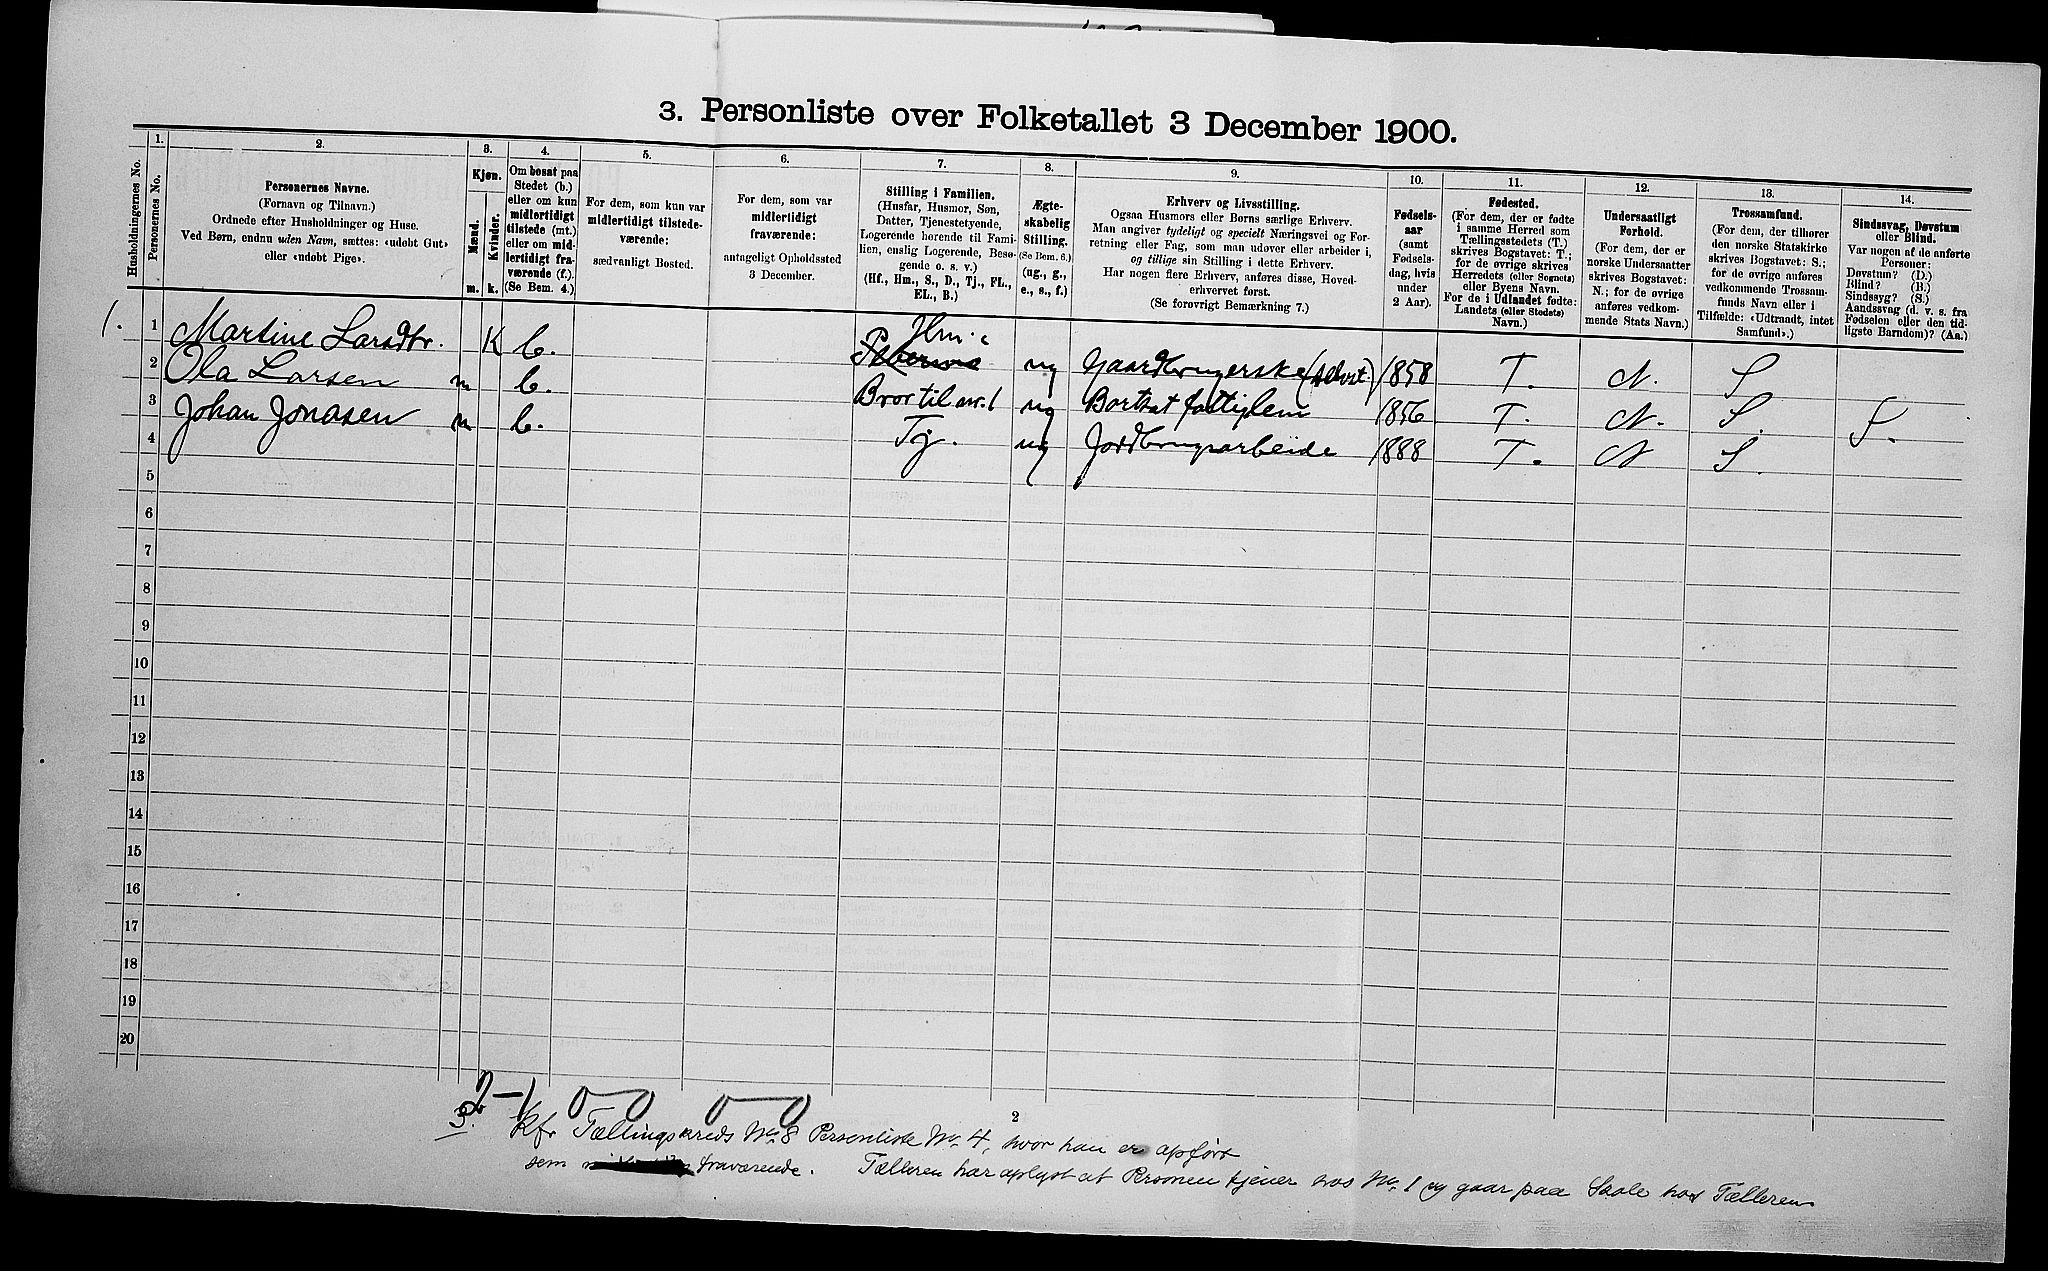 3. Personliste over Folketallet 3 December 1900.
Husholdningernes No.
1.
Personernes No.
2.
Personernes Navne.
(Fornavn og Tilnavn.)
Ordnede efter Husholdninger og Huse.
Ved Børn, endnu uden Navn, sættes: «udøbt Gut»
eller «udøbt Pige».
3.
Kjøn.
Mænd.
Kvinder.
m.
k.
4.
Om bosat paa
Stedet (b.)
eller om kun
midlertidigt
tilstede (mt.)
eller om mid-
lertidigt fra-
værende (f.).
(Se Bem. 4.)
5.
For dem, som kun var
midlertidigt tilstede-
værende:
sædvanligt Bosted.
6.
For dem, som var
midlertidigt
fraværende:
antageligt Opholdssted
3 December.
7.
Stilling i Familien.
(Husfar, Husmor, Søn,
Datter, Tjenestetyende,
Logerende hørende til Fami-
lien, enslig Logerende, Besø-
gende o. s. v.)
(Hf., Hm., S., D., Tj., FL.,
EL., B.)
8.
Ægte-
skabelig
Stilling.
(Se Bem. 6.)
(ug., g.,
e., s., f.)
9.
Erhverv og Livsstilling.
Ogsaa Husmors eller Børns særlige Erhverv.
Man angiver tydeligt og specielt Næringsvei og For-
retning eller Fag, som man udøver eller arbeider i,
og tillige sin Stilling i dette Erhverv.
Har nogen flere Erhverv, anføres disse, Hoved-
erhvervet først.
(Se forøvrigt Bemærkning 7.)
10.
Fødsels-
aar
(samt
Fødsels-
dag, hvis
under
2 Aar).
11.
Fødested.
(For dem, der er fødte
i samme Herred som
Tællingsstedets (T.)
skrives Bogstavet: T.;
for de øvrige skrives
Herredets (eller Sognets)
eller Byens Navn.
For de i Udlandet fødte:
Landets (eller Stedets)
Navn.)
12.
Undersaatligt
Forhold.
(For dem, der er
norske Undersaatter
skrives Bogstavet:
N.; for de øvrige
anføres vedkom-
mende Stats Navn.)
13.
Trossamfund.
(For dem, der tilhører
den norske Statskirke
skrives Bogstavet: S.;
for de øvrige anføres
vedkommende Trossam-
funds Navn eller i
Tilfælde: «Udtraadt, intet
Samfund».)
14.
Sindssvag, Døvstum
eller Blind.
Var nogen af de anførte
Personer:
Døvstum? (D.)
Blind? (B.)
Sindssyg? (S.)
Aandssvag (d. v. s. fra
Fødselen eller den tid-
ligste Barndom)? (Aa.)
1. 1 Martine Larsdtr. K b. Hm. ug Gaardbrugerske (selvst.) 1858 T. N. S.
2 Ola Larsen m b. Bror til nr. 1 ug Bortsat fattiglem 1856 T. N. S. S.
3 Johan Jonasen m b. Tj. ug Jordbrugsarbeide 1888 T. N S.
4
5
6
7
8
9
10
11
12
13
14
15
16
17
18
19
20
2-1 0-0 0-0
2
3. Kfr Tællingskreds No. 8 Personliste No. 4, hvor han er opført
som fraværende. Tælleren har oplyst at Personen tjener hos No. 1 og gaar paa Skole hos Tælleren